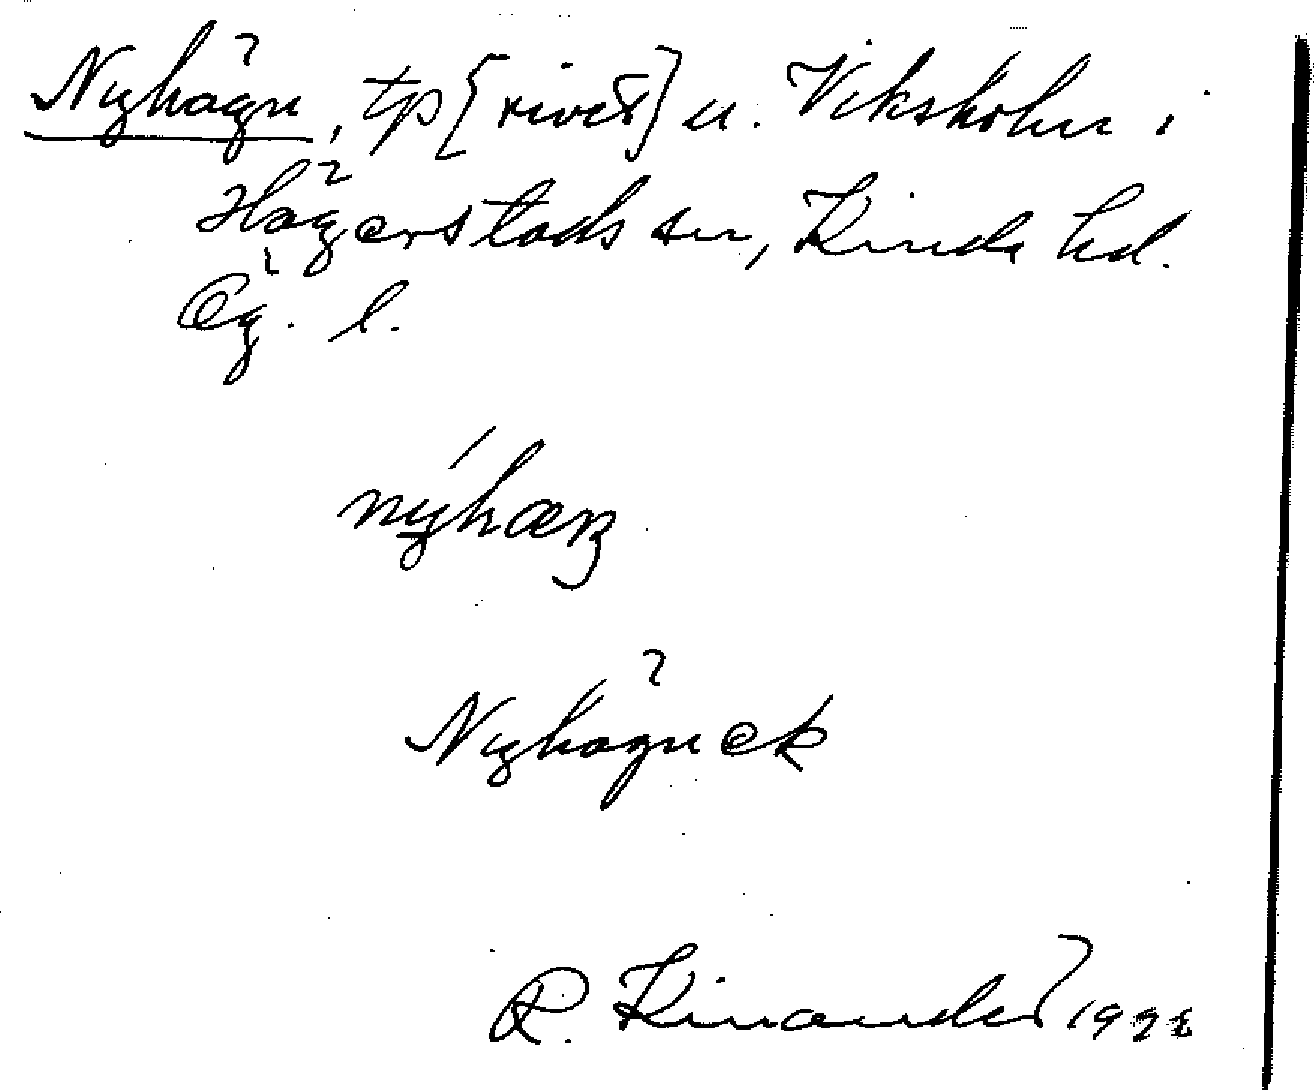 Nyhägn, tp [rivet] u. Viksholm i
Hägerstads sn, Kinda hd.
Ög. l.
Nyhägnek
R. Kinander 1922